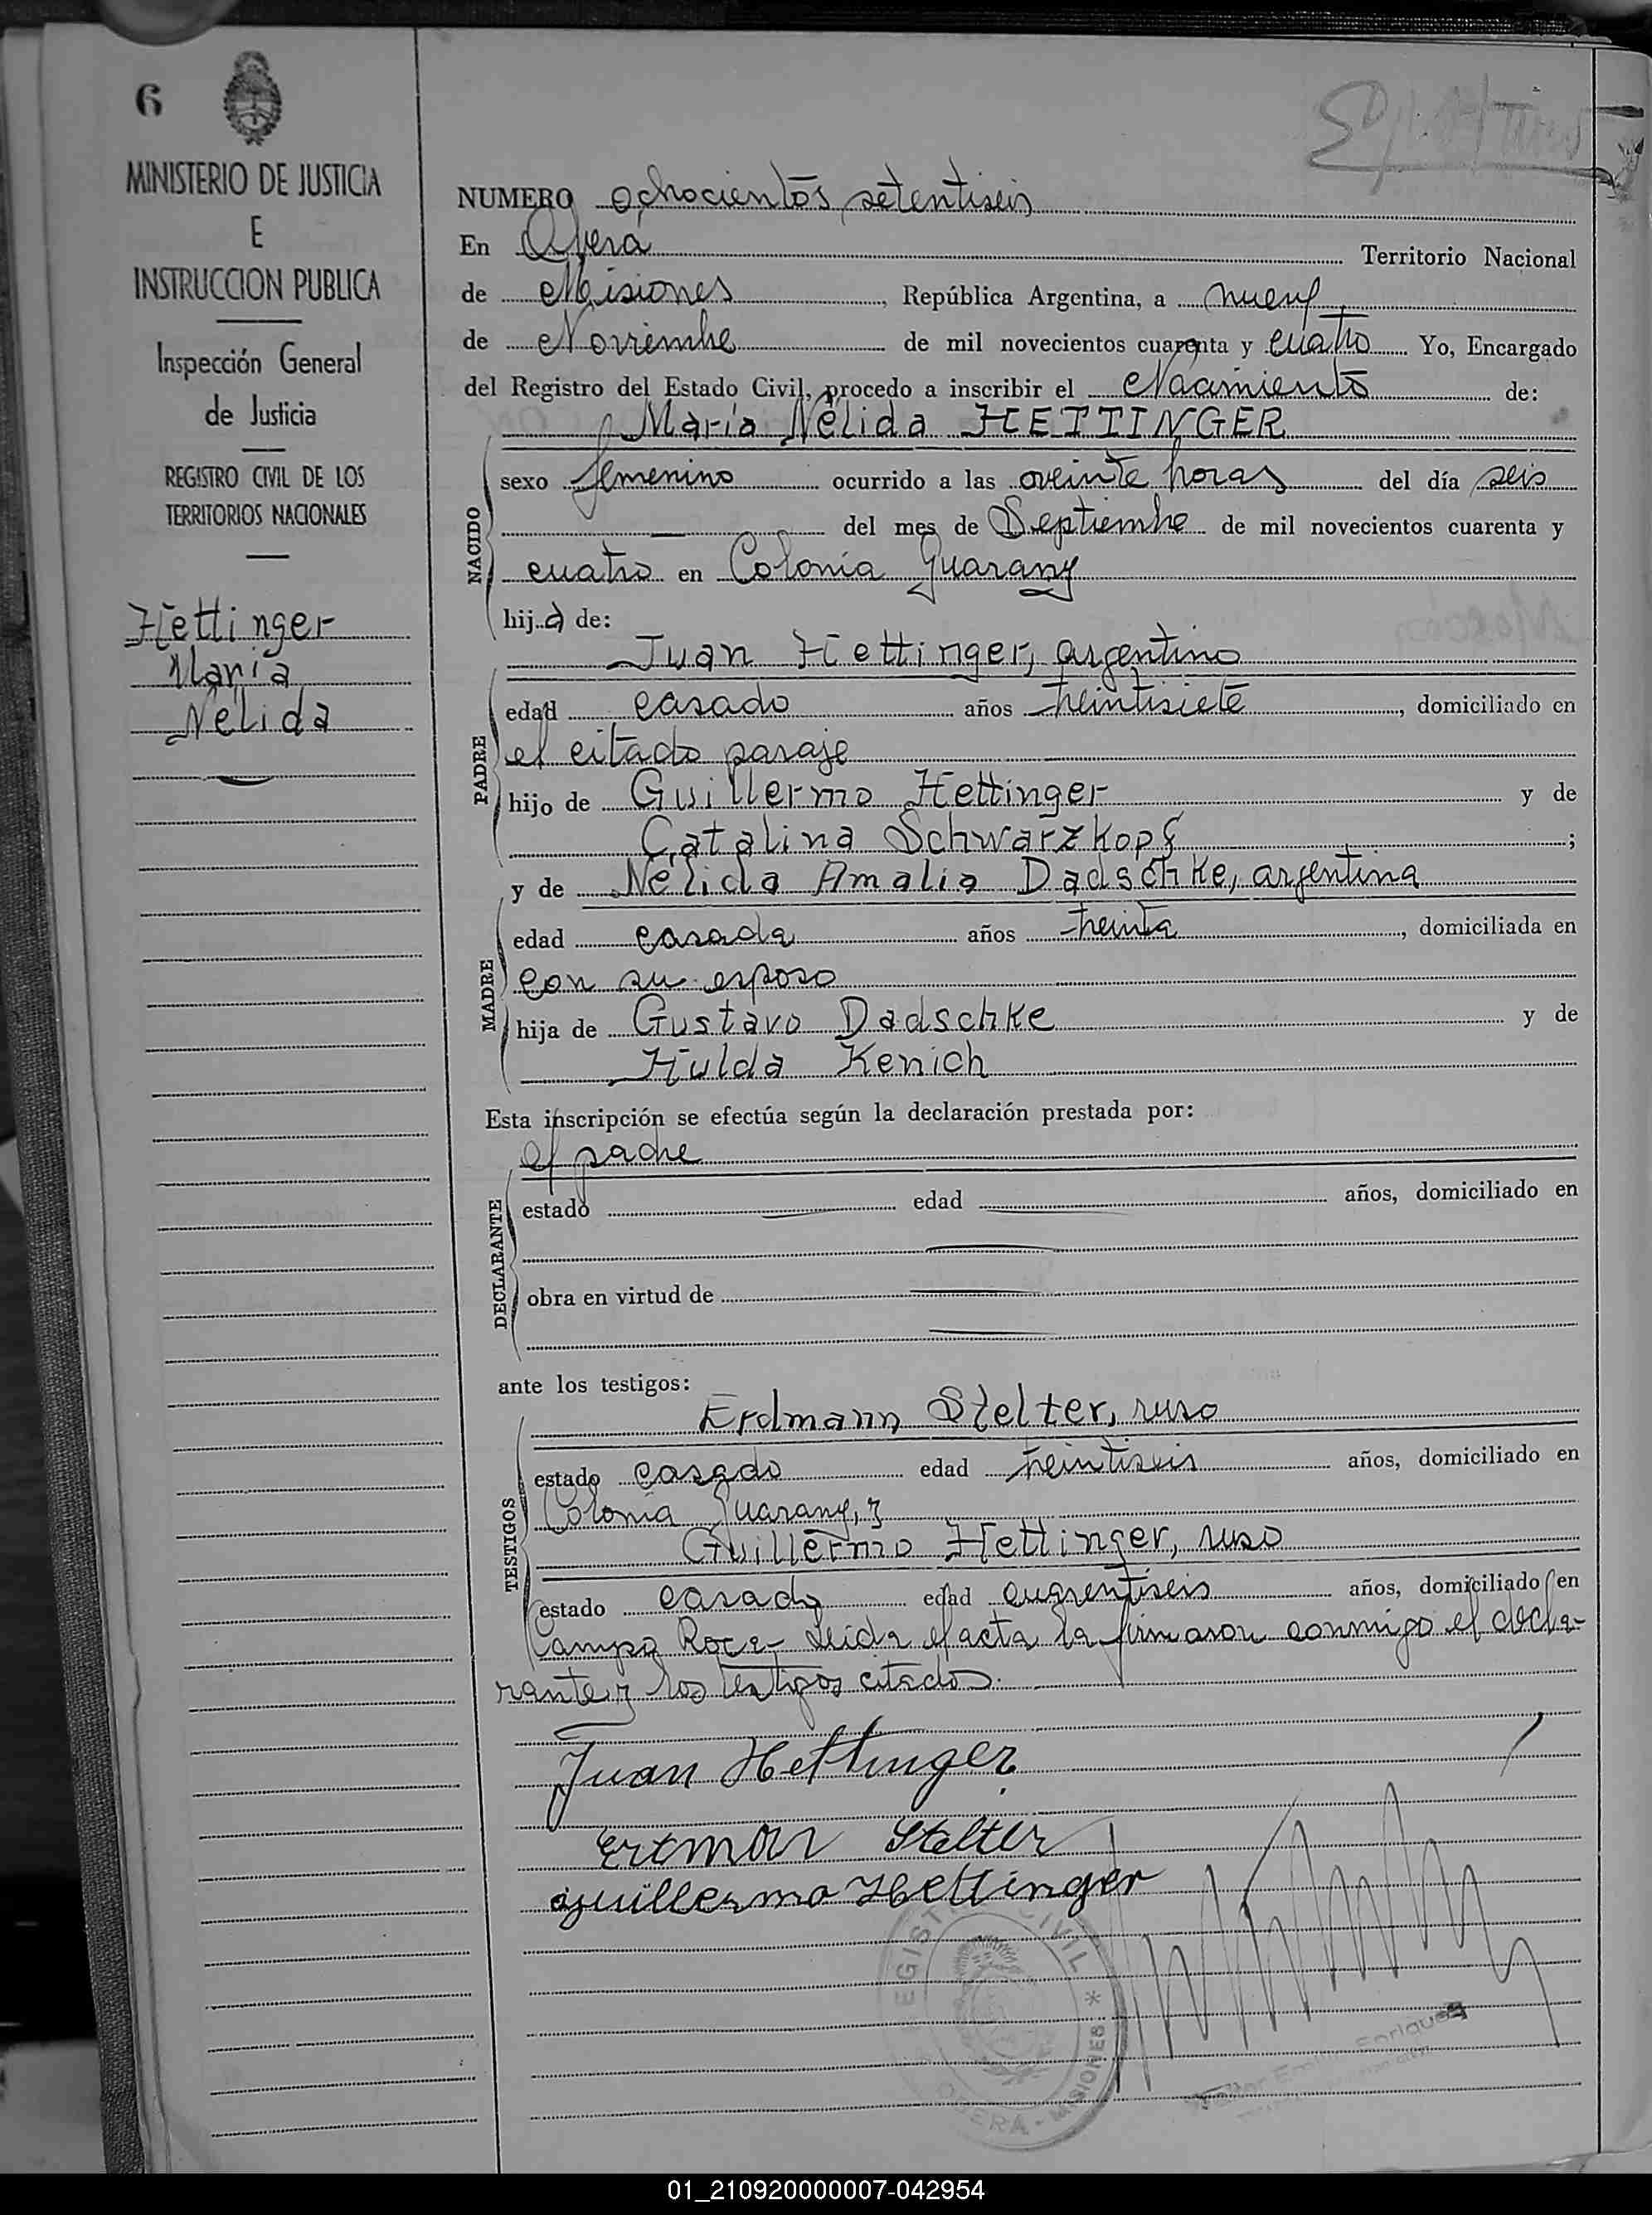 6
MINISTERIO DE JUSTICIA
E
INSTRUCCION PUBLICA
Inspección General
de Justicia
REGISTRO CIVIL DE LOS
TERRITORIOS NACIONALES
Hettinger
María
Nélida
NUMERO ochocientos setentiseis
En Oberá Territorio Nacional
de Misiones, República Argentina, a nueve
de Noviembre de mil novecientos cuarenta y cuatro Yo, Encargado
del Registro del Estado Civil, procedo a inscribir el Nacimiento de:
María Nélida HETTINGER
NACIDO
sexo femenino ocurrido a las veinte horas del día seis
del mes de Septiembre de mil novecientos cuarenta y
cuatro en Colonia Guarany
hija de:
Juan Hettinger, argentino
PADRE
edad casado años treintisiete, domiciliado en
el citado paraje
hijo de Guillermo Hettinger y de
Catalina Schwarzkopf ;
y de Nélida Amalia Dadschke, argentina
MADRE
edad casada años treinta, domiciliada en
con su esposo
hija de Gustavo Dadschke y de
Hulda Kenich
Esta inscripción se efectúa según la declaración prestada por:
el padre
DECLARANTE
estado edad años, domiciliado en
obra en virtud de
ante los testigos:
Erdmann Stelter, ruso
TESTIGOS
estado casado edad treintiseis años, domiciliado en
Colonia Guarany, y
Guillermo Hettinger, ruso
estado casado edad cuarentiseis años, domiciliado en
Campo Roca- Leida el acta la firmaron conmigo el decla-
rante y los testigos citados.
Juan Hettinger
Ertman Stelter
Guillermo Hettinger
REGISTRO CIVIL *
OBERA - MISIONES
Enriquez
01_210920000007-042954